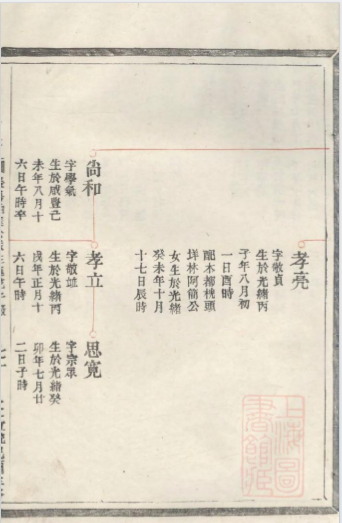 孝亮
字敬貞
生於光緒丙
子年八月初
一日酉時
配本都桃頭
垟林阿簡公
女生於光緒
癸未年十月
十七日辰時
尙和
字學
生於咸豐己
未年八月十
六日午時卒
孝立
字敬
生於光緒丙
戌年正月十
六日午時
思寬
字宗眾
生於光緒癸
卯年七月廿
二日子時
上海圖
書館藏